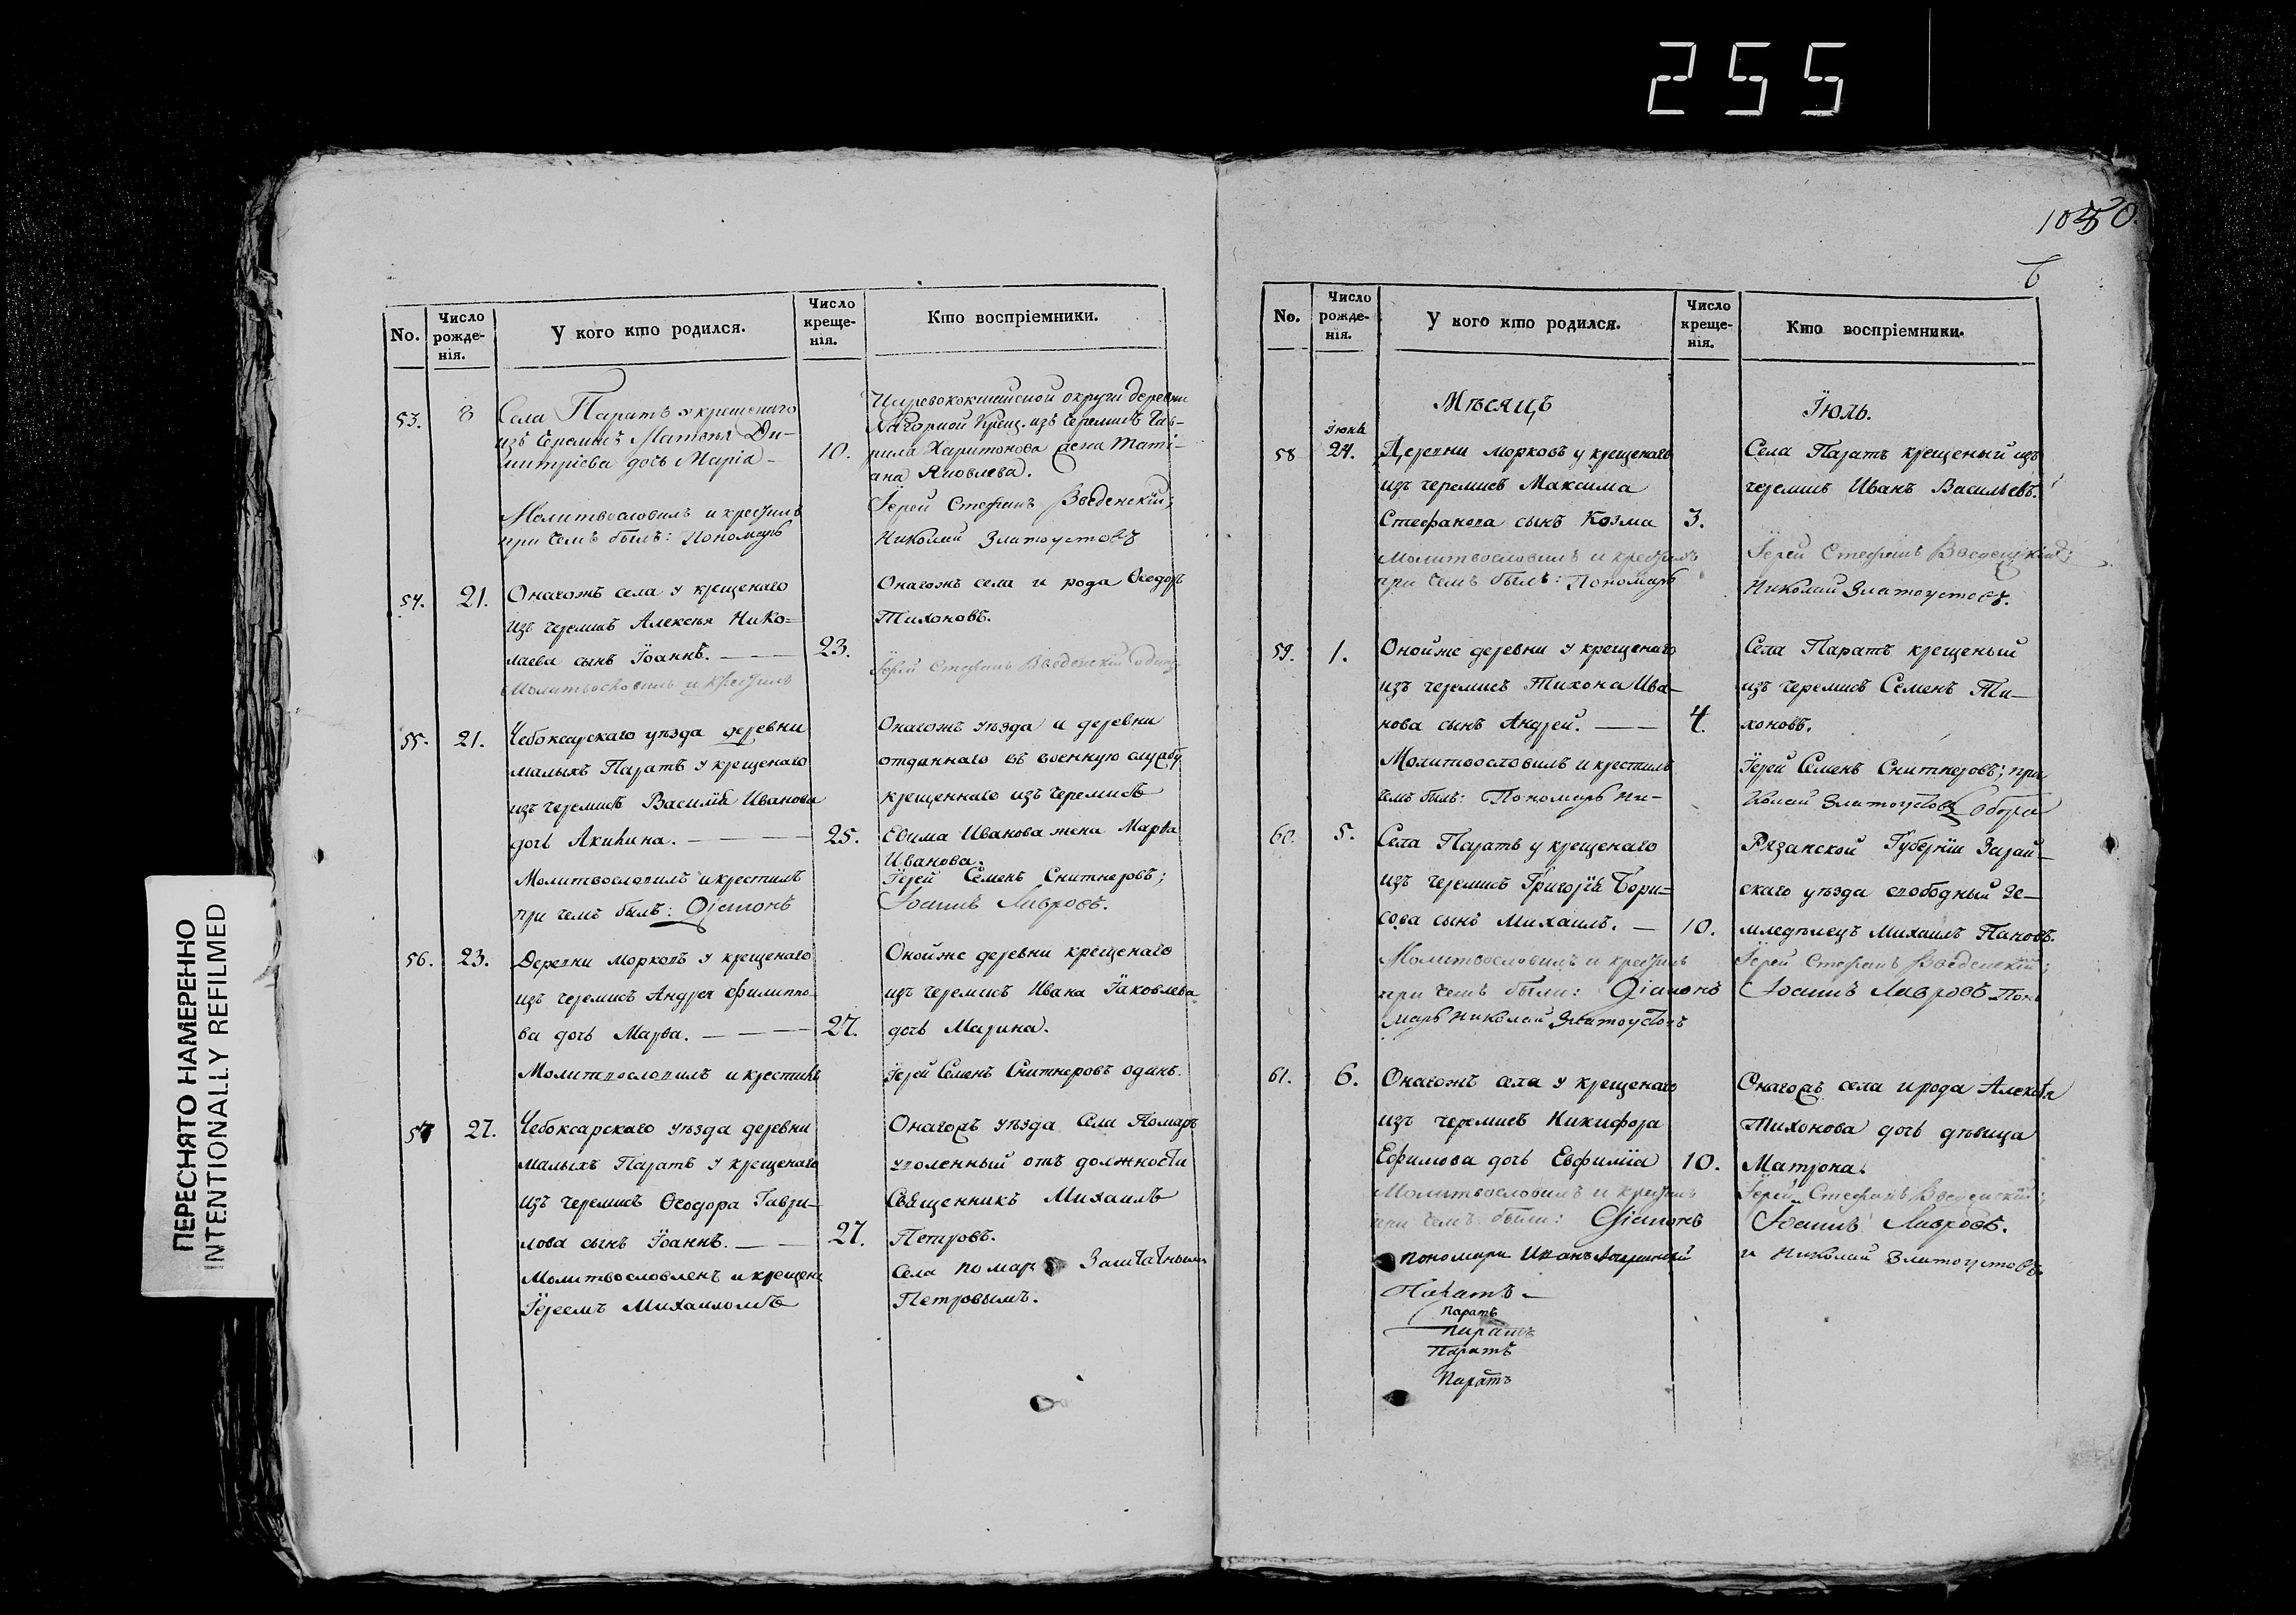 255
1050.
6
No.
Число рожде-нія.
У кого кто родился.
Число креще-нія.
Кто воспріемники.
53.
8
Села Паратъ у крещенаго
изъ Черемисъ Матвѣя Ди-
митріева дочь Марія
10.
Царевококшайской округи деревни
Нагорной Крещ. изъ Черемисъ Гав-
рила Харитонова жена Таті-
ана Яковлева.
Молитвословилъ и крестилъ
при чемъ былъ: Пономарь
Іерей Стефанъ Введенскій;
Николай Златоустовъ
54.
21.
Онагожъ села у крещенаго
изъ черемисъ Алексѣя Нико=
лаева сынъ Іоаннъ.
23.
Онагожъ села и рода Ѳеодоръ
Тихоновъ.
Молитвословилъ и крестилъ
Іерей Стефанъ Введенскій одинъ
55.
21.
Чебоксарскаго уѣзда деревни
малыхъ Паратъ у крещенаго
изъ черемисъ Василія Иванова
дочь Акилина.
25.
Онагожъ уѣзда и деревни
отданнаго въ военную службу
крещеннаго изъ черемисъ
Евима Иванова жена Марва
Иванова.
Молитвословилъ и крестилъ
при чемъ былъ: Діаконъ
Іерей Семенъ Снитнеровъ;
Іоаннъ Лавровъ.
56.
23.
Деревни морковъ у крещенаго
изъ черемисъ Андрея Филиппо-
ва дочь Марва.
27.
Онойже деревни крещенаго
изъ черемисъ Ивана Іаковлева
дочь Марина.
Молитвословилъ и крестилъ
Іерей Семенъ Снитнеровъ одинъ.
57
27.
Чебоксарскаго уѣзда деревни
малыхъ Паратъ у крещенаго
изъ черемисъ Ѳеодора Гаври-
лова сынъ Іоаннъ.
27.
Онагожъ уѣзда Села Помаръ
уволенный отъ должности
Священникъ Михаилъ
Петровъ.
Молитвословленъ и крещенъ
Іереемъ Михаиломъ
Села Помаръ Заштатнымъ
Петровымъ.
No.
Число рожде-нія.
У кого кто родился.
Число креще-нія.
Кто воспріемники.
Мѣсяцъ
Іюль.
58
Іюня
24.
Деревни морковъ у крещенаго
изъ черемисъ Максима
Стефанова сынъ Козма
3.
Села Паратъ крещеный изъ
черемисъ Иванъ Васильевъ.
Молитвословилъ и крестилъ
при чемъ былъ: Пономарь
Іерей Стефанъ Введенскій;
Николай Златоустовъ.
59.
1.
Онойже деревни у крещенаго
изъ черемисъ Тихона Ива-
нова сынъ Андрей.
4.
Села Паратъ крещеный
изъ черемисъ Семенъ Ти-
хоновъ.
Молитвословилъ и крестилъ
Іерей Семенъ Снитнеровъ; при
чемъ былъ: Пономарь Ни-
колай Златоустовъ
60.
5.
Села Паратъ у крещенаго
изъ черемисъ Григорія Бори=
сова сынъ Михаилъ.
10.
Рязанской Губерніи Зарай-
скаго уѣзда свободный зе-
мледѣлецъ Михаилъ Пановъ.
Молитвословилъ и крестилъ
при чемъ были: Діаконъ
Іерей Стефанъ Введенскій;
Іоаннъ Лавровъ Поно
марь Николай Златоустовъ
61.
6.
Онагожъ села у крещенаго
изъ черемисъ Никифора
Ефимова дочь Евфимія
10.
Онагожъ села и рода Алексѣя
Тихонова дочь дѣвица
Матрона.
Молитвословилъ и крестилъ
при чемъ были: Діаконъ
Іерей Стефанъ Введенскій;
Іоаннъ Лавровъ.
пономари Иванъ
и Николай Златоустовъ
Паратъ
Паратъ
Паратъ
Паратъ
Паратъ
ПЕРЕСНЯТО НАМЕРЕННО
INTENTIONALLY REFILMED